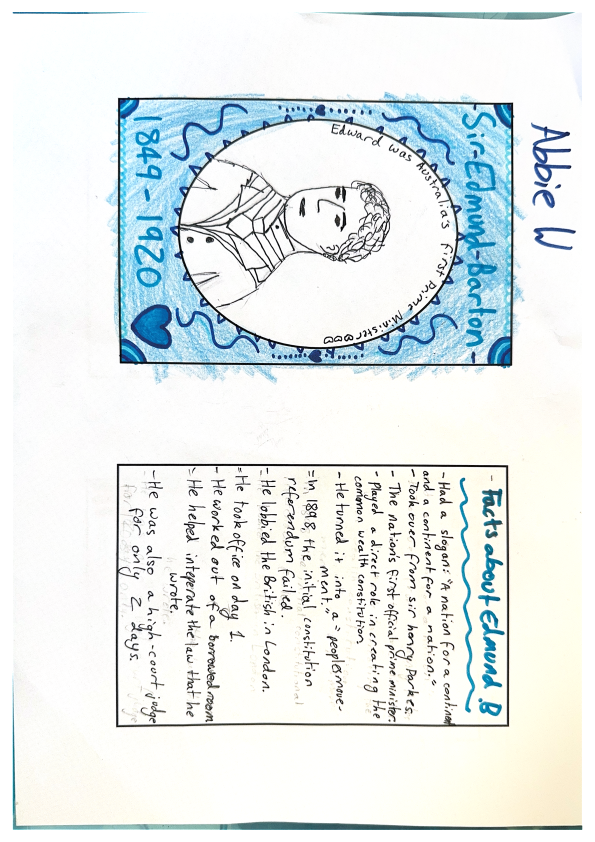 Abbie W
-Sir-Edmund-Barton-
Edward was Australia's first Prime Minister
1849 - 1920
- Facts about Edmund.B
- Had a slogan: "A nation for a continent
and a continent for a nation."
- Took over from sir henry Parkes.
- The nation's first official prime minister.
- Played a direct role in creating the
common wealth constitution
- He turned it into a "peoples move-
ment."
- In 1898, the initial constitution
referendum failed.
- He lobbied the British in London.
- He took office on day 1.
- He worked out of a borrowed room
- He helped inteperate the law that he
wrote.
- He was also a high-court judge
for only 2 days.